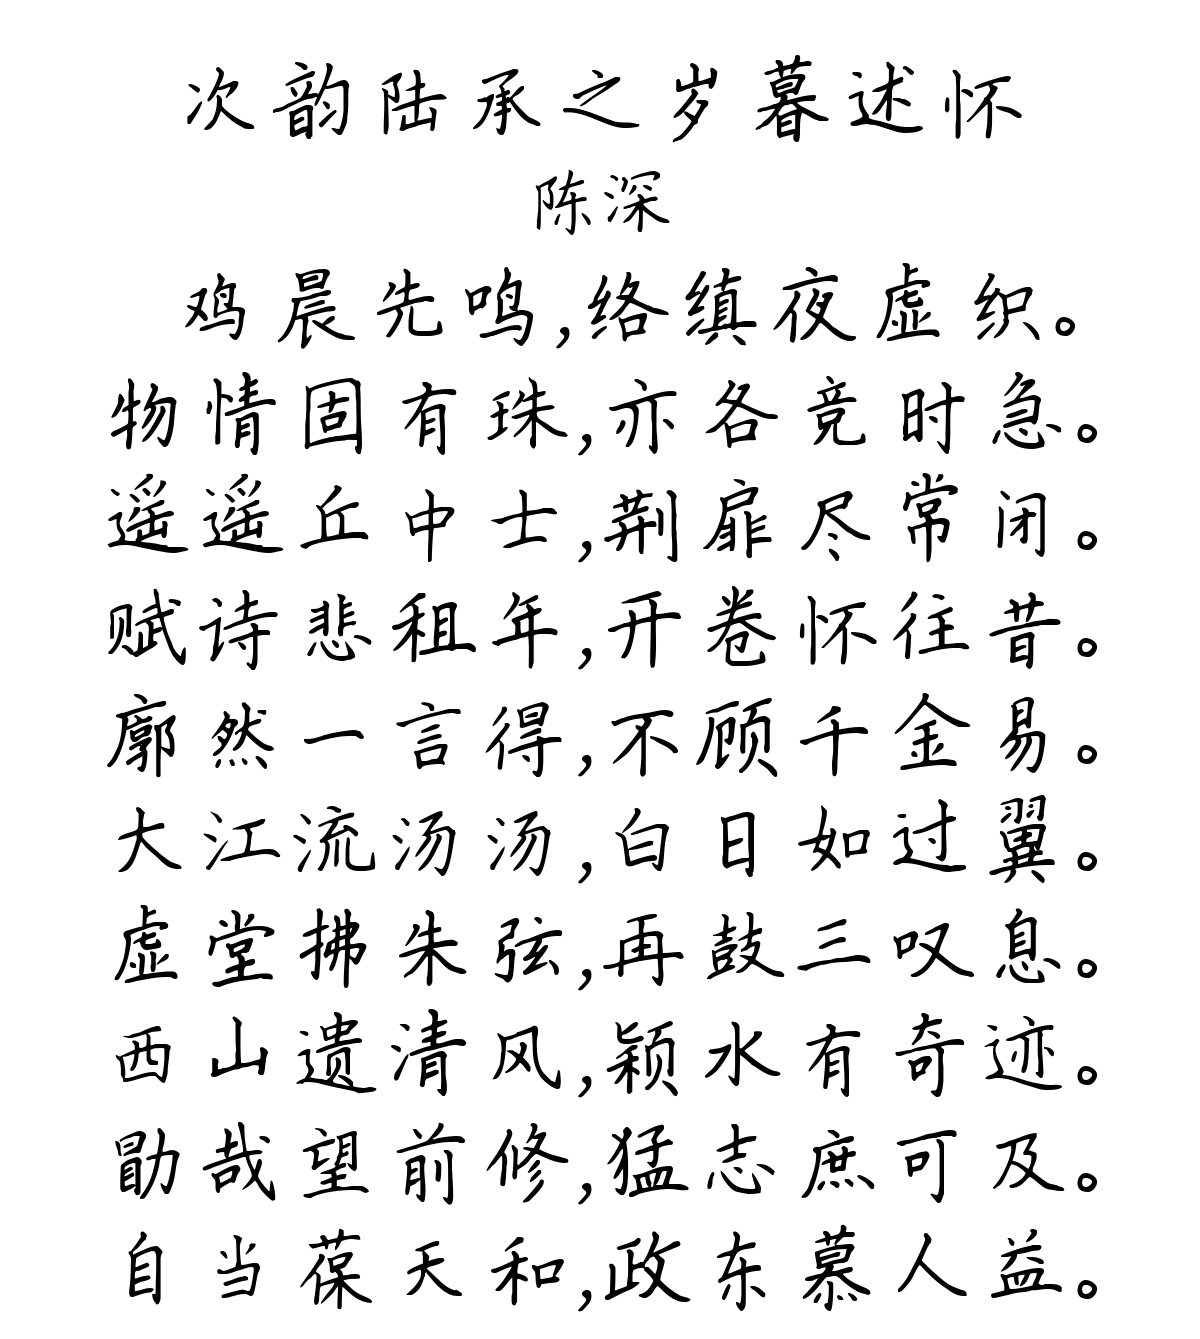 次韵陆承之岁暮述怀
陈深
鸡晨先鸣,络缜夜虚织。
物情固有珠,亦各竞时急。
遥遥丘中士,荆扉尽常闭。
赋诗悲租年,开卷怀往昔。
廓然一言得,不顾千金易。
大江流汤汤,白日如过翼。
虚堂拂朱弦,再鼓三叹息。
西山遗清风,颖水有奇迹。
勖哉望前修,猛志庶可及。
自当葆天和,政东慕人益。